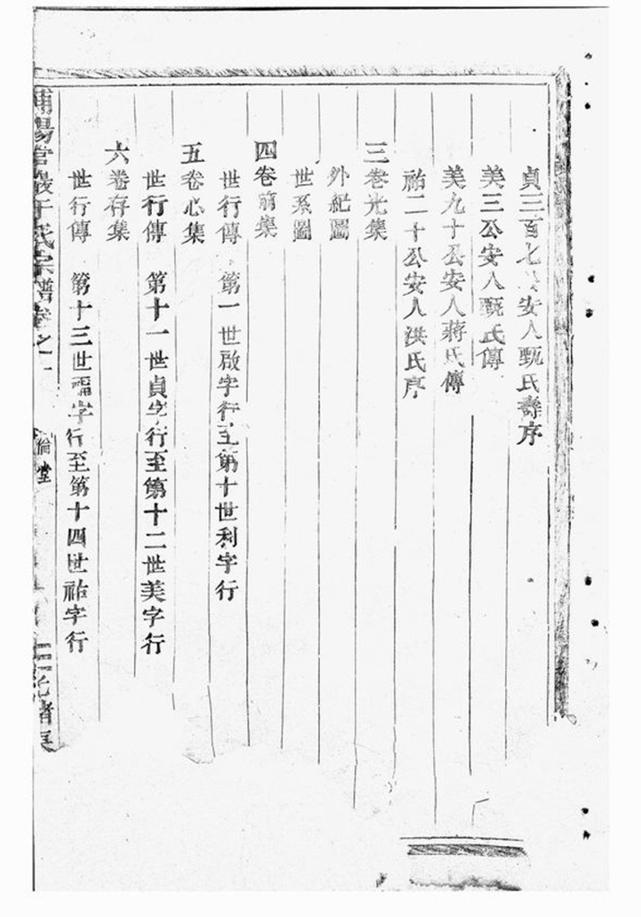 貞三百七 公安人甄氏壽序
美三公安人甄氏傳
美九十公安人蔣氏傳
祐二十公安人洪氏序
三卷光集
外紀圖
世系圖
四卷前集
世行傳 第一世啟字行至第十世利字行
五卷心集
世行傳 第十一世貞字行至第十二世美字行
六卷存集
世行傳 第十三世福字行至第十四世祐字行
浦陽 巖于氏宗譜卷之一 倫堂 光緒